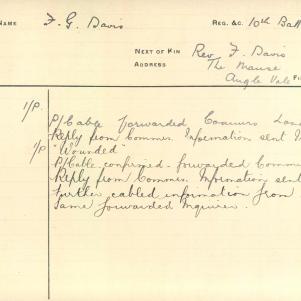 NAME F. G. Davis REG. &C. 10th Batt
NEXT OF KIN Rev F. Davis
ADDRESS The Manse
Angle Vale
1/P. P/Cable forwarded Commrs Lond
Reply from Commrs. Information sent
1/P "Wounded"
P/Cable confirmed. forwarded Comm
Reply from Commrs. Information sent
Further cabled information from
Same forwarded Inquirer.